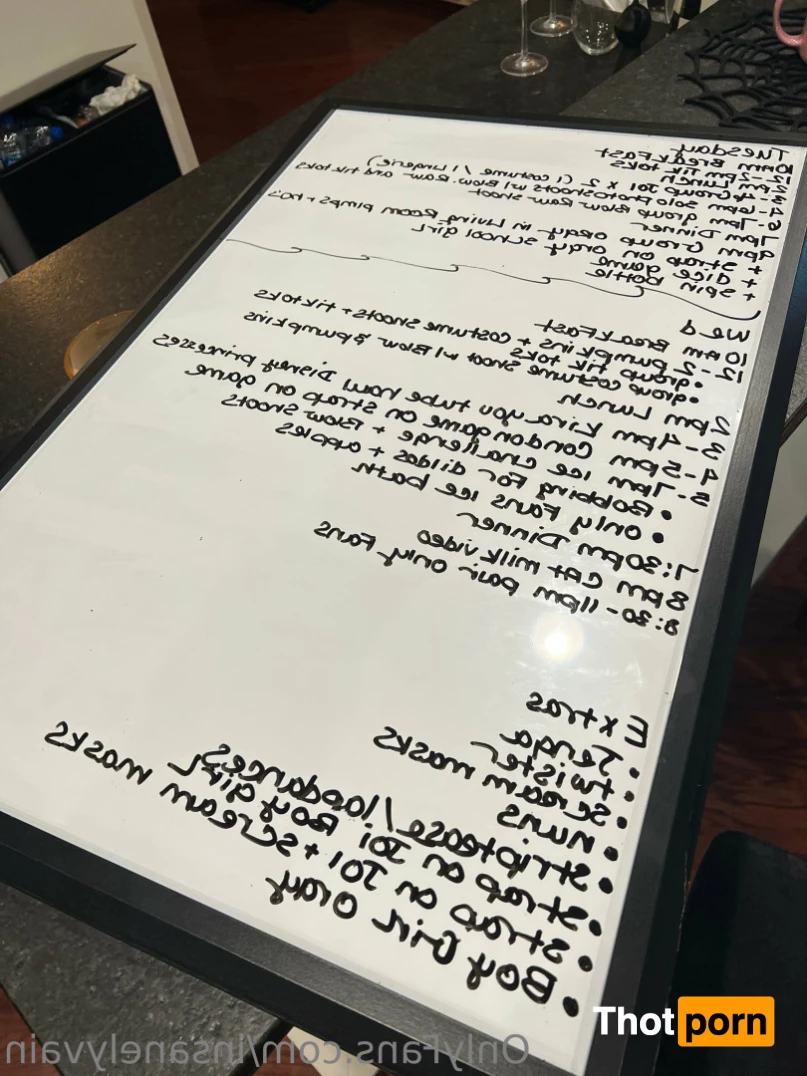 Tuesday
10AM BreakFast
12-2pm Tik toks
2pm Lunch
3-4 Group JOI x 2 (1 costume / 1 Lingerie)
4-6pm solo photoshoots w/ Blow. Rawr and tiktoks
6-7pm group Blow Rawr shoot
7pm Dinner
9pm Group orgy in Living Room pimps + ho's
+ strap on orgy school girl
+ dice game
+ spin bottle
Wed
10AM BreakFast
12-2 Pumpkins + costume shoots + tiktoks
• group tik toks
• group costume shoot w/ Blow & pumpkins
2pm Lunch
3-4pm Kira you tube now Disney princesses
4-5pm Condon game on strap on game
5-7pm ice challenge + Blow shoots
• Bobbing for dildos + apples
• only Fans ice bath
7:30pm Dinner
8pm CAt milk video
8:30-11pm pair only Fans
Extras
• Jenga
• twister
• scream masks
• nuns
• striptease / lapdances
• strap on JOI Boy girl
• strap on JOI + scream masks
• Boy Girl orgy
OnlyFans.com/insanelyvain
Thot porn